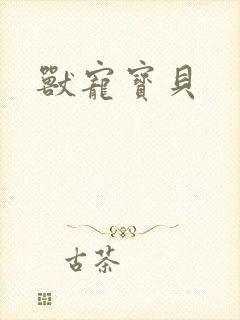 獸寵寶貝
古茶